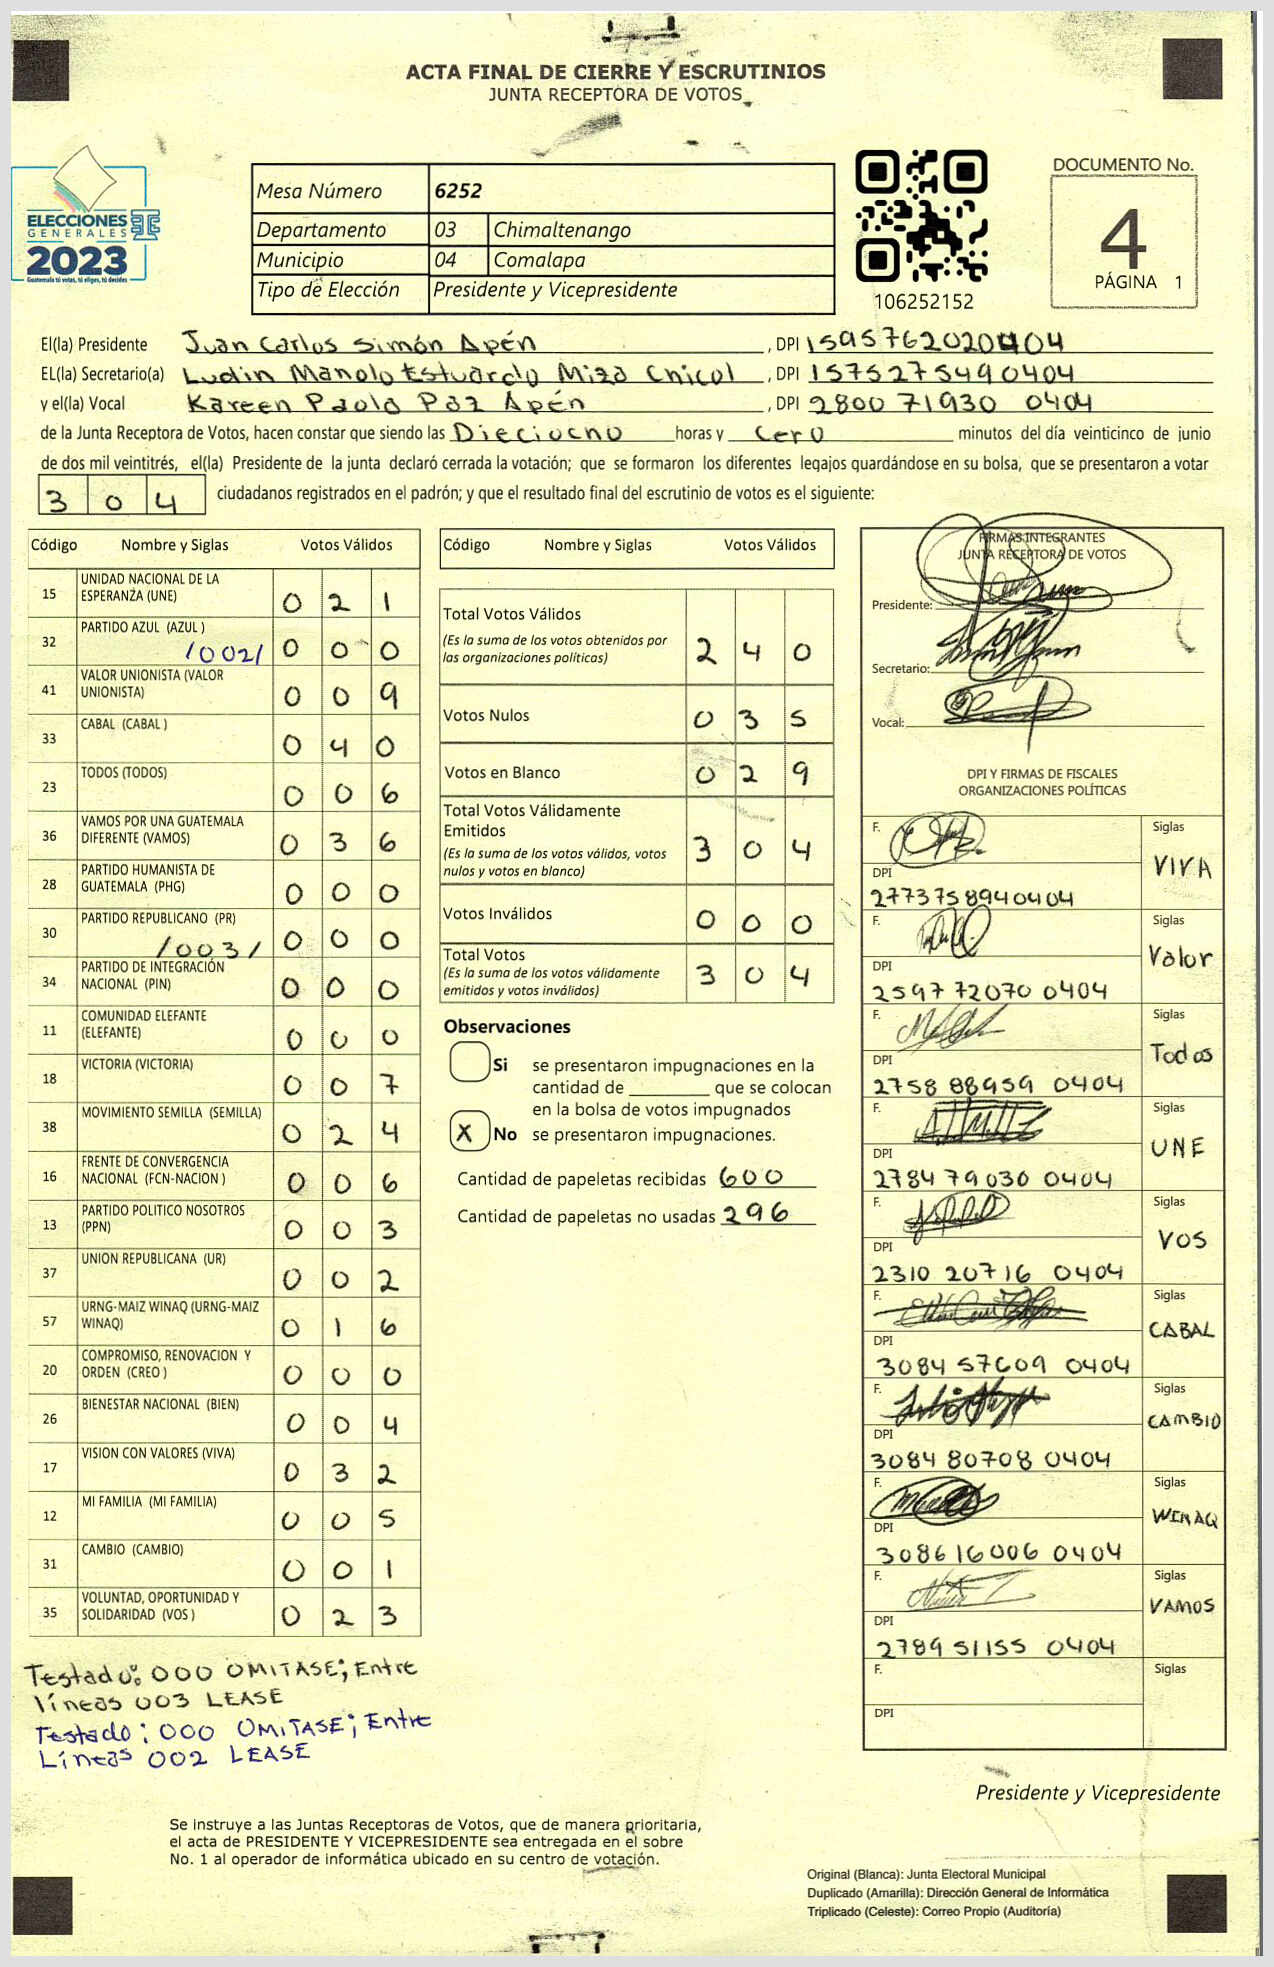 ACTA FINAL DE CIERRE Y ESCRUTINIOS
JUNTA RECEPTORA DE VOTOS
ELECCIONES
GENERALES
2023
Guatemala tú votas, tú eliges, tú decides
Mesa Número 6252
Departamento 03 Chimaltenango
Municipio 04 Comalapa
Tipo de Elección Presidente y Vicepresidente
106252152
DOCUMENTO No.
4
PÁGINA 1
El(la) Presidente Juan Carlos Simón Apén, DPI 1595762020404
EL(la) Secretario(a) Ludin Manolo Estuardo Miza Chicol, DPI 1575275490404
y el(la) Vocal Kareen Paola Paz Apén, DPI 2800 71930 0404
de la Junta Receptora de Votos, hacen constar que siendo las Dieciocho horas y cero minutos del día veinticinco de junio
de dos mil veintitrés, el(la) Presidente de la junta declaró cerrada la votación; que se formaron los diferentes legajos guardándose en su bolsa, que se presentaron a votar
3 0 4 ciudadanos registrados en el padrón; y que el resultado final del escrutinio de votos es el siguiente:
Código Nombre y Siglas Votos Válidos
15 UNIDAD NACIONAL DE LA ESPERANZA (UNE) 0 2 1
32 PARTIDO AZUL (AZUL ) /002/ 0 0 0
41 VALOR UNIONISTA (VALOR UNIONISTA) 0 0 9
33 CABAL (CABAL ) 0 4 0
23 TODOS (TODOS) 0 0 6
36 VAMOS POR UNA GUATEMALA DIFERENTE (VAMOS) 0 3 6
28 PARTIDO HUMANISTA DE GUATEMALA (PHG) 0 0 0
30 PARTIDO REPUBLICANO (PR) /003/ 0 0 0
34 PARTIDO DE INTEGRACIÓN NACIONAL (PIN) 0 0 0
11 COMUNIDAD ELEFANTE (ELEFANTE) 0 0 0
18 VICTORIA (VICTORIA) 0 0 7
38 MOVIMIENTO SEMILLA (SEMILLA) 0 2 4
16 FRENTE DE CONVERGENCIA NACIONAL (FCN-NACION ) 0 0 6
13 PARTIDO POLITICO NOSOTROS (PPN) 0 0 3
37 UNION REPUBLICANA (UR) 0 0 2
57 URNG-MAIZ WINAQ (URNG-MAIZ WINAQ) 0 1 6
20 COMPROMISO, RENOVACION Y ORDEN (CREO ) 0 0 0
26 BIENESTAR NACIONAL (BIEN) 0 0 4
17 VISION CON VALORES (VIVA) 0 3 2
12 MI FAMILIA (MI FAMILIA) 0 0 5
31 CAMBIO (CAMBIO) 0 0 1
35 VOLUNTAD, OPORTUNIDAD Y SOLIDARIDAD (VOS ) 0 2 3
Testado: 000 OMITASE; Entre
líneas 003 LEASE
Testado: 000 OMITASE; Entre
Líneas 002 LEASE
Código Nombre y Siglas Votos Válidos
Total Votos Válidos
(Es la suma de los votos obtenidos por
las organizaciones políticas) 2 4 0
Votos Nulos 0 3 5
Votos en Blanco 0 2 9
Total Votos Válidamente
Emitidos
(Es la suma de los votos válidos, votos
nulos y votos en blanco) 3 0 4
Votos Inválidos 0 0 0
Total Votos
(Es la suma de los votos válidamente
emitidos y votos inválidos) 3 0 4
Observaciones
Si se presentaron impugnaciones en la
cantidad de ________ que se colocan
en la bolsa de votos impugnados
X No se presentaron impugnaciones.
Cantidad de papeletas recibidas 600
Cantidad de papeletas no usadas 296
FIRMAS INTEGRANTES
JUNTA RECEPTORA DE VOTOS
Presidente:
Secretario:
Vocal:
DPI Y FIRMAS DE FISCALES
ORGANIZACIONES POLÍTICAS
F. Siglas
VIVA
DPI
2773758940404
F. Siglas
Valor
DPI
2597 72070 0404
F. Siglas
Todos
DPI
2758 88959 0404
F. Siglas
UNE
DPI
2784 79030 0404
F. Siglas
VOS
DPI
2310 20716 0404
F. Siglas
CABAL
DPI
3084 57609 0404
F. Siglas
CAMBIO
DPI
3084 80708 0404
F. Siglas
WINAQ
DPI
308616006 0404
F. Siglas
VAMOS
DPI
2789 51155 0404
F. Siglas
DPI
Presidente y Vicepresidente
Se instruye a las Juntas Receptoras de Votos, que de manera prioritaria,
el acta de PRESIDENTE Y VICEPRESIDENTE sea entregada en el sobre
No. 1 al operador de informática ubicado en su centro de votación.
Original (Blanca): Junta Electoral Municipal
Duplicado (Amarilla): Dirección General de Informática
Triplicado (Celeste): Correo Propio (Auditoría)